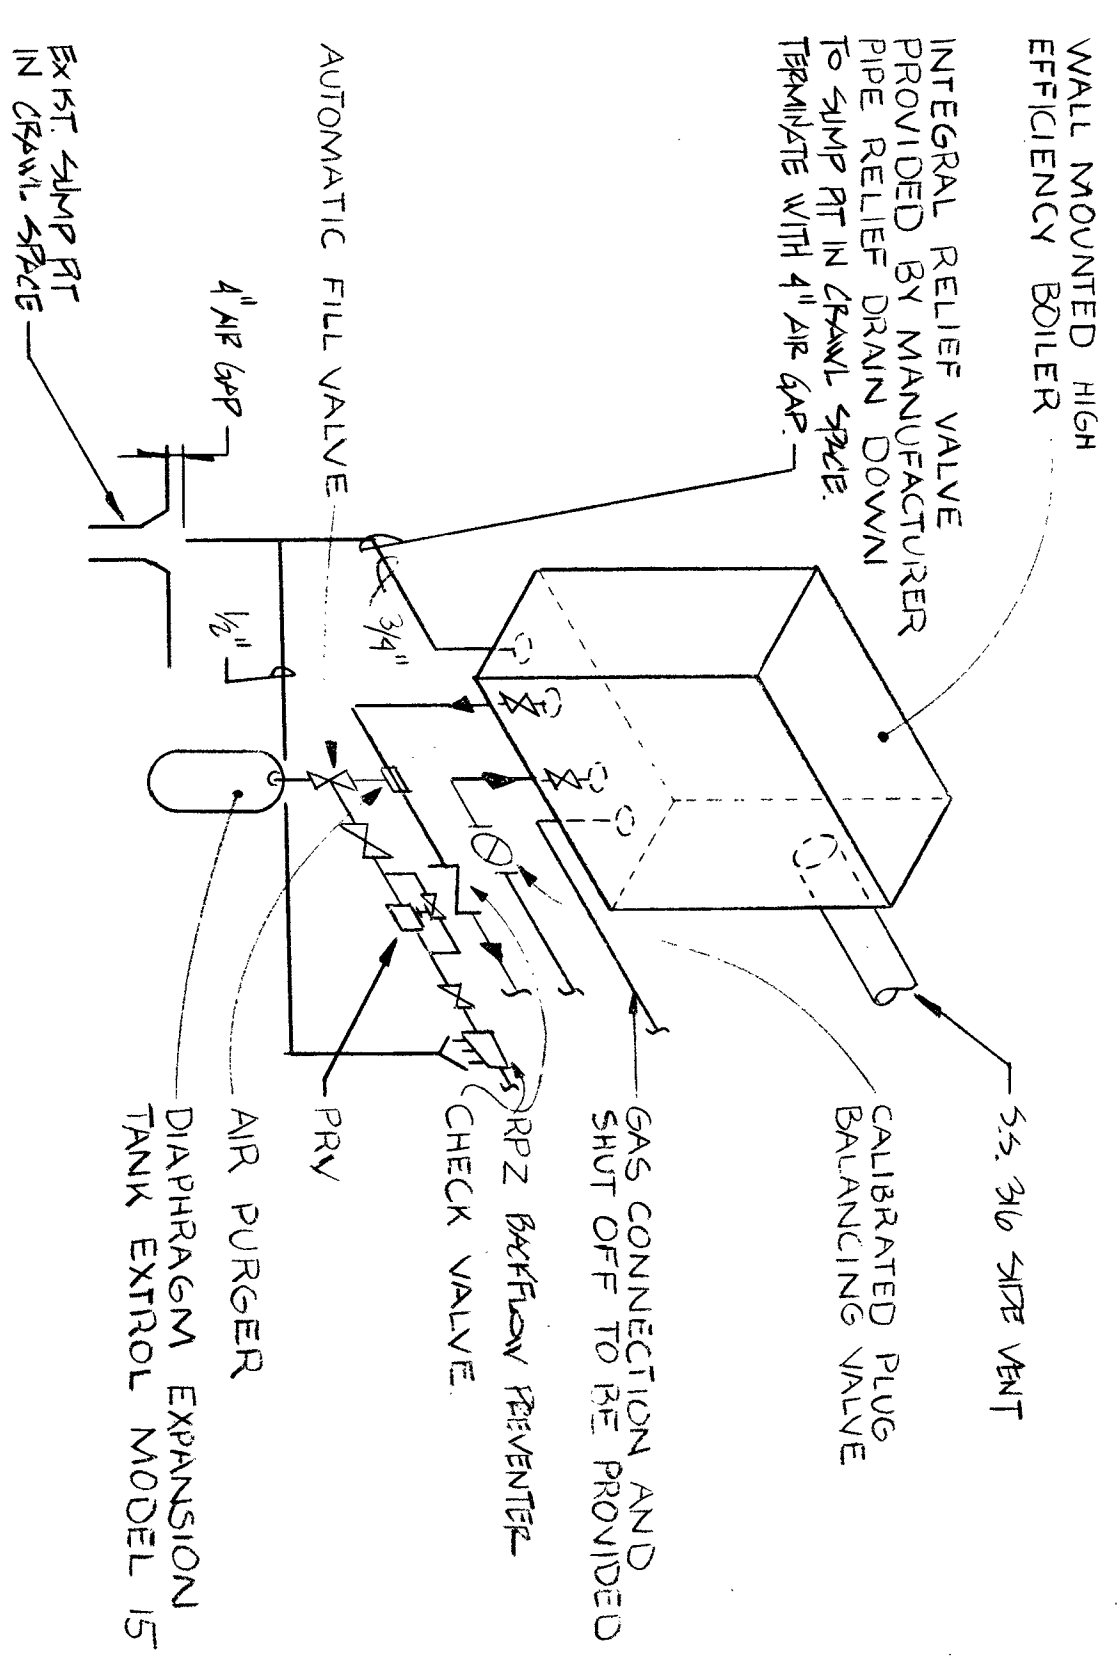 WALL MOUNTED HIGH
EFFICIENCY BOILER
INTEGRAL RELIEF VALVE
PROVIDED BY MANUFACTURER
PIPE RELIEF DRAIN DOWN
TO SUMP PIT IN CRAWL SPACE.
TERMINATE WITH 4" AIR GAP.
AUTOMATIC FILL VALVE
4" AIR GAP
EXIST. SUMP PIT
IN CRAWL SPACE
3/4"
1/2"
S.S. 316 SIDE VENT
CALIBRATED PLUG
BALANCING VALVE
GAS CONNECTION AND
SHUT OFF TO BE PROVIDED
RPZ BACKFLOW PREVENTER
CHECK VALVE
PRV
AIR PURGER
DIAPHRAGM EXPANSION
TANK EXTROL MODEL 15